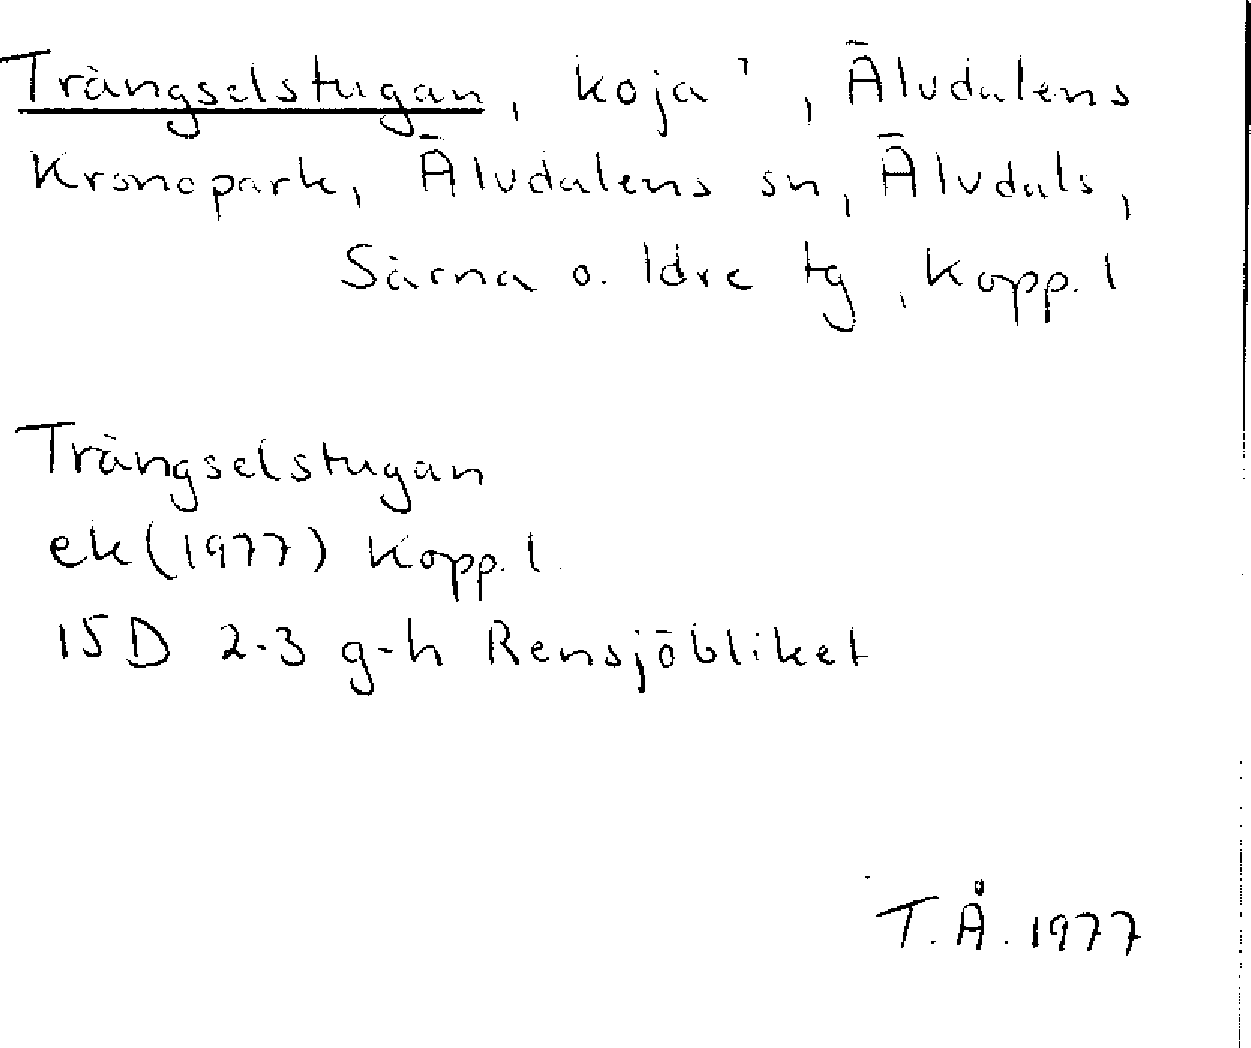 Trängselstugan, koja', Älvdalens
Kronopark, Älvdalens sn, Älvdals,
Särna o. Idre tg, Kopp. l
Trängselstugan
ek (1977) Kopp. l.
15 D 2-3 g-h Rensjöbliket
T. Å. 1977